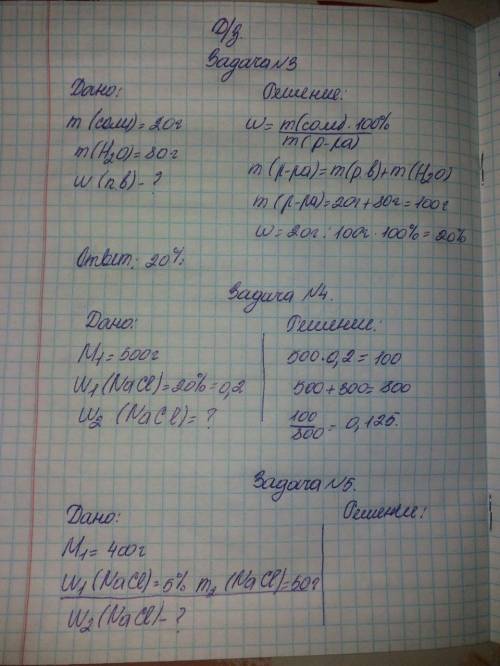 Д/з.
Задача №3
Дано:
m (соли) = 20г
m(H₂O) = 80г
w (п в) - ?
Решение:
w = m(соли) · 100% / m(р-ра)
m (р-ра) = m(р.в) + m(H₂O)
m (р-ра) = 20г + 80г = 100г
w = 20г : 100г · 100% = 20%
Ответ: 20%
Задача №4.
Дано:
M₁ = 500г
W₁ (NaCl) = 20% = 0,2
W₂ (NaCl) = ?
Решение:
500 · 0,2 = 100
500 + 300 = 800
100/800 = 0,125.
Задача №5.
Дано:
M₁ = 400г
W₁ (NaCl) = 5% m₂ (NaCl) = 50г
W₂ (NaCl) - ?
Решение: